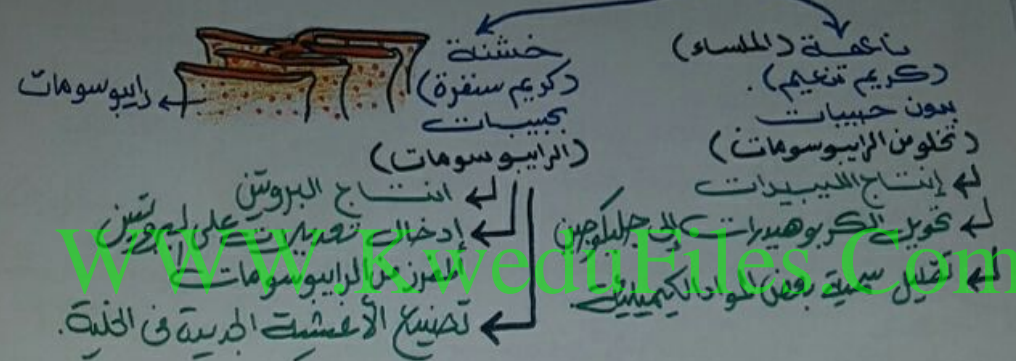 ناعمة (الملساء)
(كريم تنعيم).
بدون حبيبات
(تخلو من الرايبوسومات)
إنتاج الليبيدات
تحويل الكربوهيدرات إلى جليكوجين
تقليل سمية بعض المواد الكيميائية.
خشنة
(كريم سنفرة)
بحبيبات
(الرايبوسومات)
انتاج البروتين
إدخال تعديلات على البروتين
المفرز من الرايبوسومات
تصنيع الأغشية الجديدة في الخلية.
رايبوسومات
WWW.KweduFiles.Com